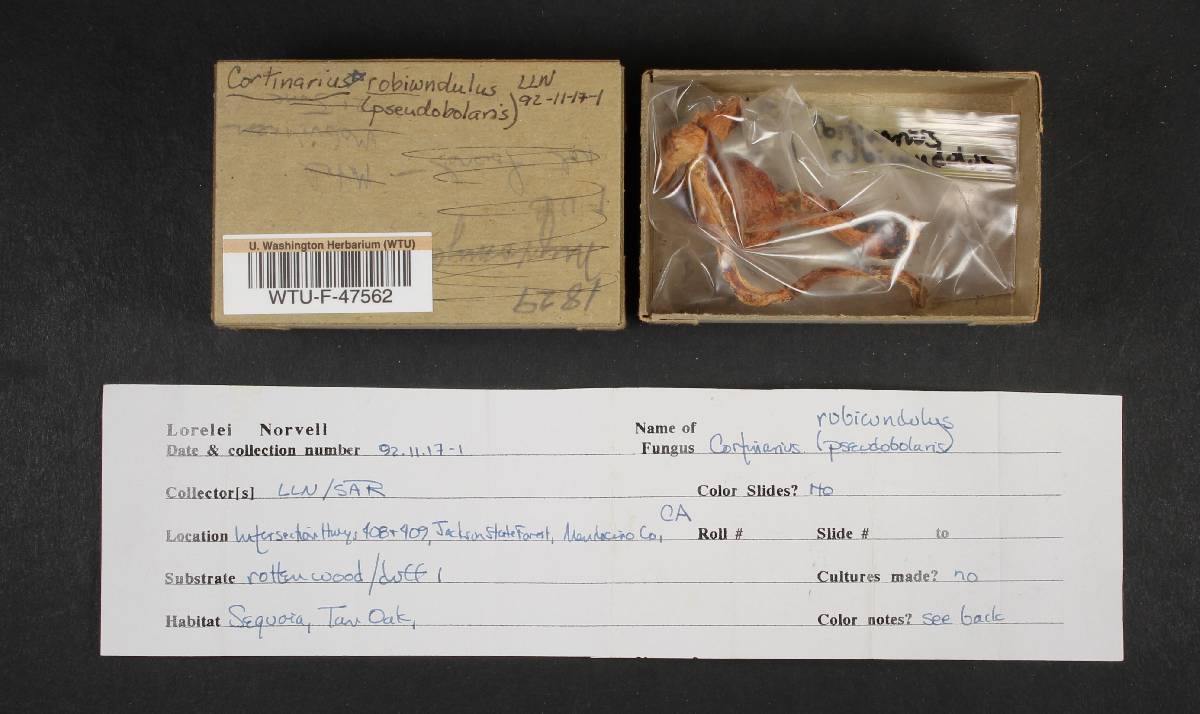 Cortinarius robicundulus LLN
(pseudobolaris) 92-11-17-1
1829
U. Washington Herbarium (WTU)
WTU-F-47562
Lorelei Norvell
Date & collection number 92.11.17-1
Name of Fungus Cortinarius rubicundulus (pseudobolaris)
Collector[s] LLN/SAR
Color Slides? No
Location Intersection Hwys 408+409, Jackson State Forest, Mendocino Co., CA
Roll # Slide # to
Substrate rotten wood/duff
Cultures made? no
Habitat Sequoia, Tan Oak,
Color notes? see back